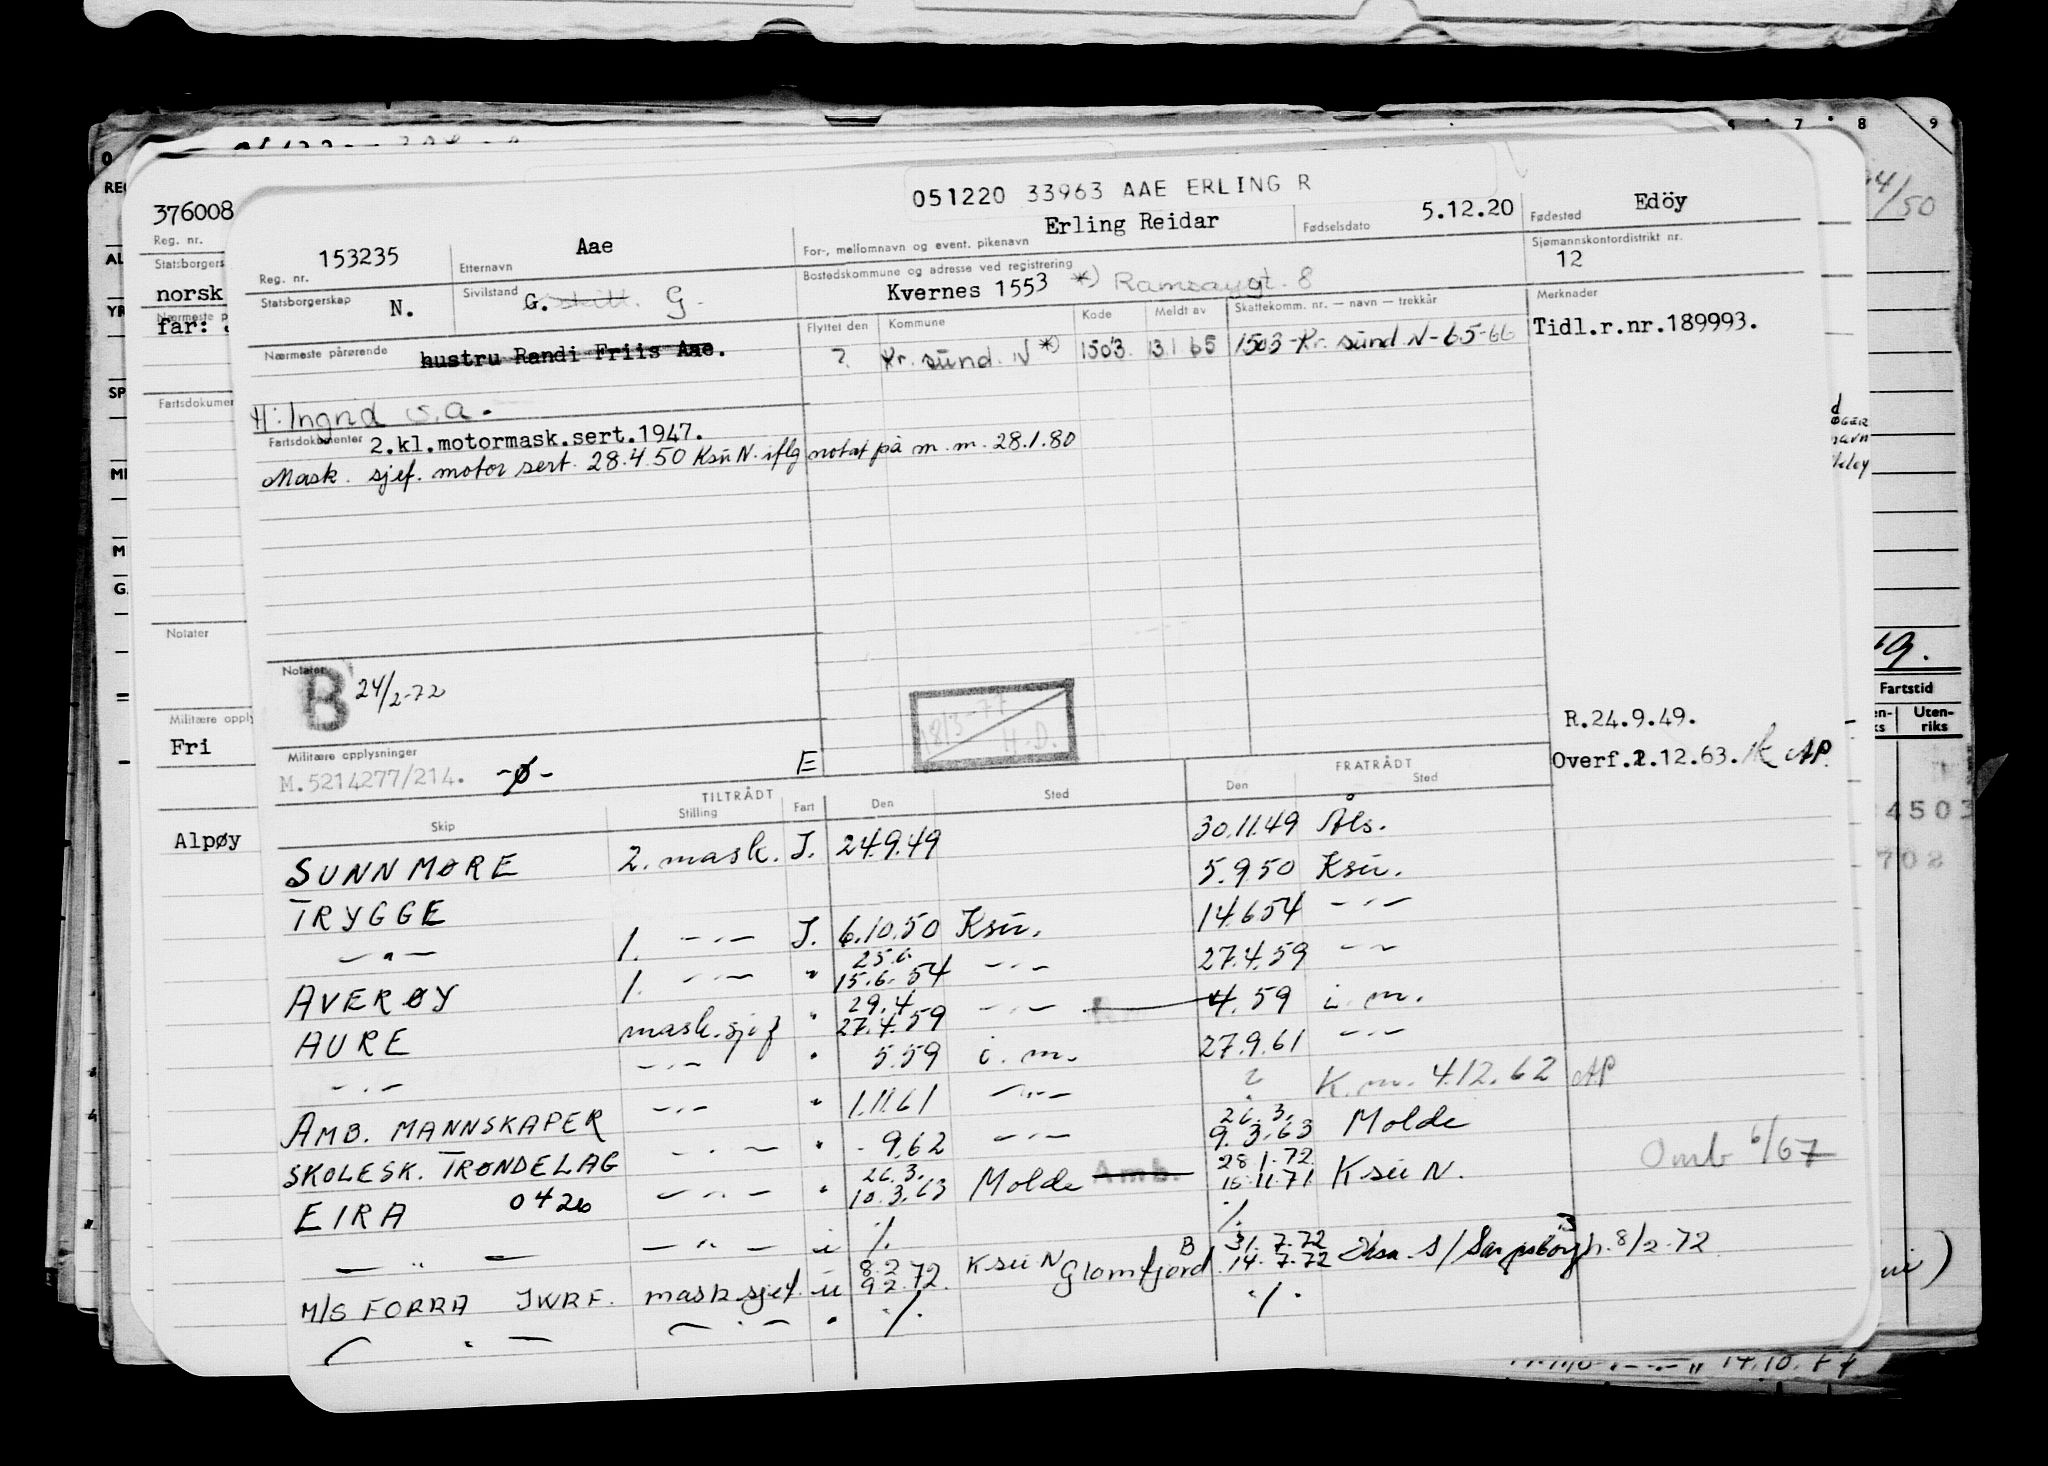 051220 33963 AAE ERLING R
376008
Reg. nr.
Statsborgers
norsk
Nærmeste p
far:
Fartsdokumen
Notater
Militære oppl
Fri
Alpøy
Reg. nr. 153235
Etternavn Aae
For-, mellomnavn og event. pikenavn Erling Reidar
Fødselsdato 5.12.20
Fødested Edöy
Statsborgerskap N.
Sivilstand G. G.
Bostedskommune og adresse ved registrering
Kvernes 1553 *) Ramsaygt. 8
Sjømannskontordistrikt nr.
12
Nærmeste pårørende hustru Randi Friis Aae.
Flyttet den Kommune Kode Meldt av Skattekomm. nr. — navn — trekkår
? Kr. sund. N *) 1503. 13.1 65 1503 - Kr. sund N - 65-66
Merknader
Tidl.r.nr.189993.
H: Ingrid s.a.
Fartsdokumenter 2.kl.motormask.sert.1947.
Mask. sjef. motor sert. 28.4.50 Ksu N. iflg notat på m.m. 28.1.80
Notater
B 24/2-72
18/3-77
H.D.
R.24.9.49.
Militære opplysninger
M.5214277/214. -Ø-
E
Overf.2.12.63. AP.
TILTRÅDT FRATRÅDT
Skip Stilling Fart Den Sted Den Sted
SUNNMØRE 2. mask. I. 24.9.49 30.11.49 Åls.
TRYGGE 5.9.50 Ksu.
— " — 1. — " — I. 6.10.50 Ksu. 14.6.54 — " —
AVERØY 1. — " — " 25.6. 15.6.54 — " — 27.4.59 — " —
AURE mask.sjef " 29.4 27.4.59 — " — 4.59 i. m.
— " — — " — " 5.59 i. m. 27.9.61 — " —
AMB. MANNSKAPER — " — " 1.11.61 — " — ? K.m. 4.12.62 AP
SKOLESK. TRØNDELAG — " — " - 9.62 — " — 26.3. 9.3.63 Molde
EIRA 0426 — " — " 26.3. 10.3.63 Molde Amb. 28.1.72 16.11.71 Ksu N.
Omb 6/67
— " — — " — u ./. ./.
M/S FORRA JWRF. mask sjef. u 8.2 9.2.72 Ksu N Glomfjord B 31.7.72 14.7.72 S/ Sarpsborg 8/2.72
— " — — " — " ./. ./.
Fartstid
Uten-
riks
4503
708
14.10.